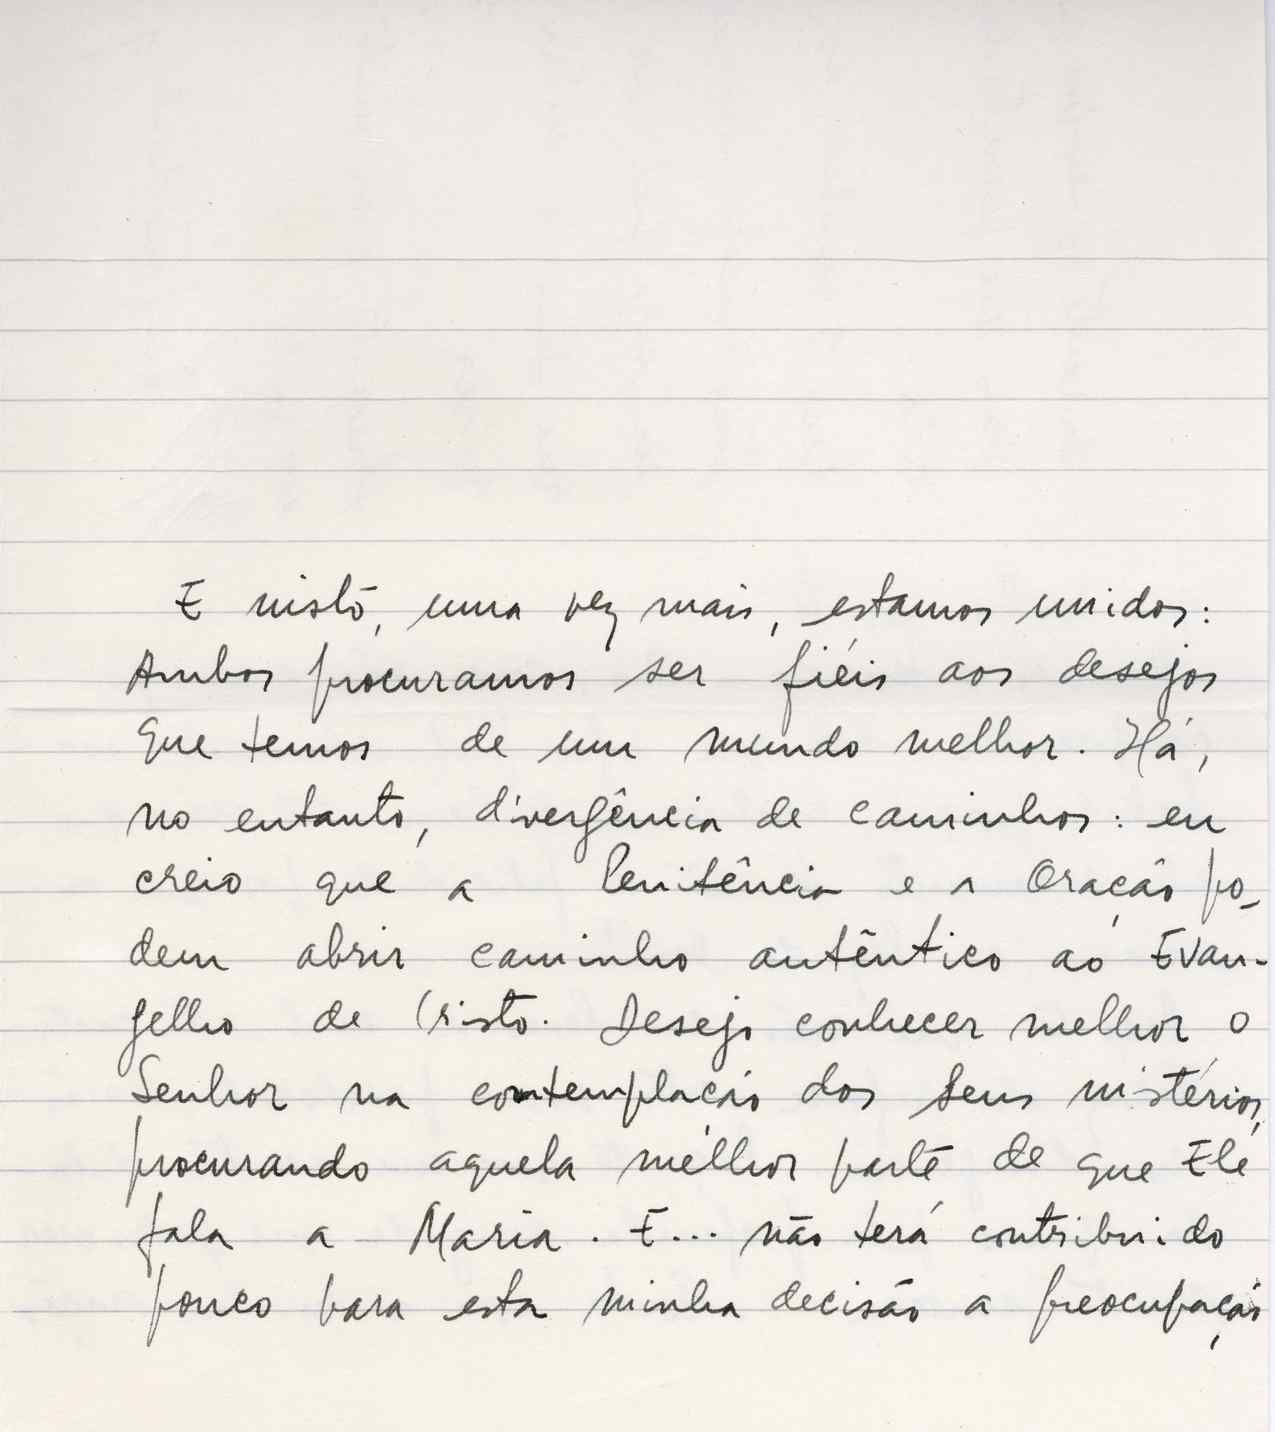 E nisto, uma vez mais, estamos unidos:
Ambos procuramos ser fiéis aos desejos
que temos de um mundo melhor. Há,
no entanto, divergência de caminhos: eu
creio que a Penitência e a Oração po-
dem abrir caminho autêntico ao Evan-
gelho de Cristo. Desejo conhecer melhor o
Senhor na contemplação dos Seus mistérios,
procurando aquela melhor parte de que Ele
fala a Maria. E... não terá contribuido
pouco para esta minha decisão a preocupação